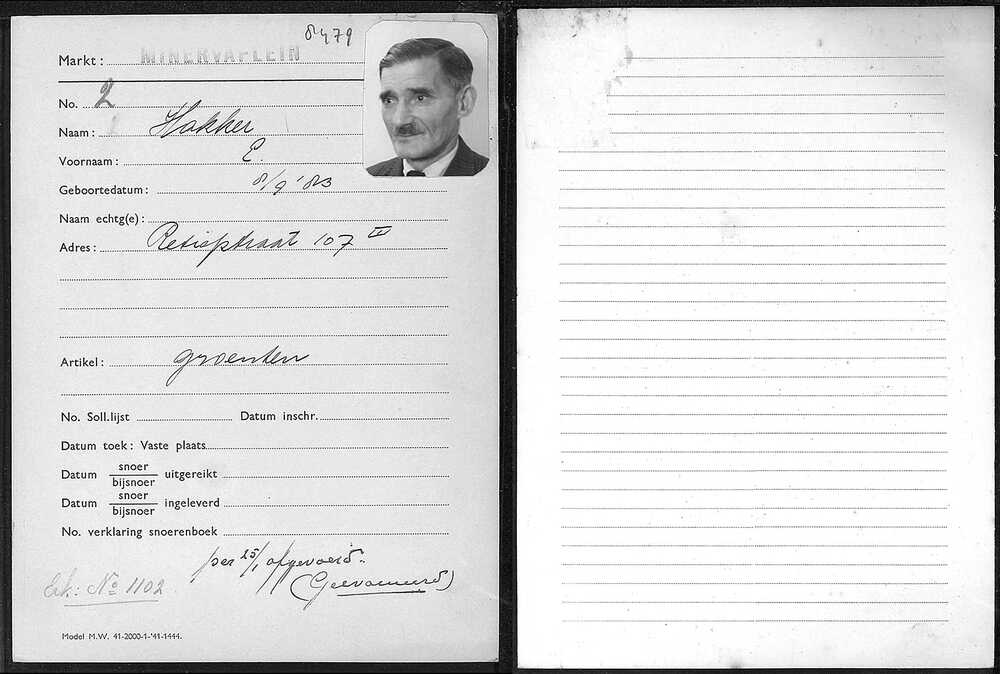 8479
Markt: MINERVAPLEIN
No. 2
Naam: Hakker
Voornaam: E.
Geboortedatum: 8/9 '83
Naam echtg(e):
Adres: Retiefstraat 107 III
Artikel: groenten
No. Soll.lijst Datum inschr.
Datum toek: Vaste plaats
Datum snoer/bijsnoer uitgereikt
Datum snoer/bijsnoer ingeleverd
No. verklaring snoerenboek
per 25/1 afgevoerd.
(Geevacueerd)
Erk: No 1102
Model M.W. 41-2000-1-'41-1444.